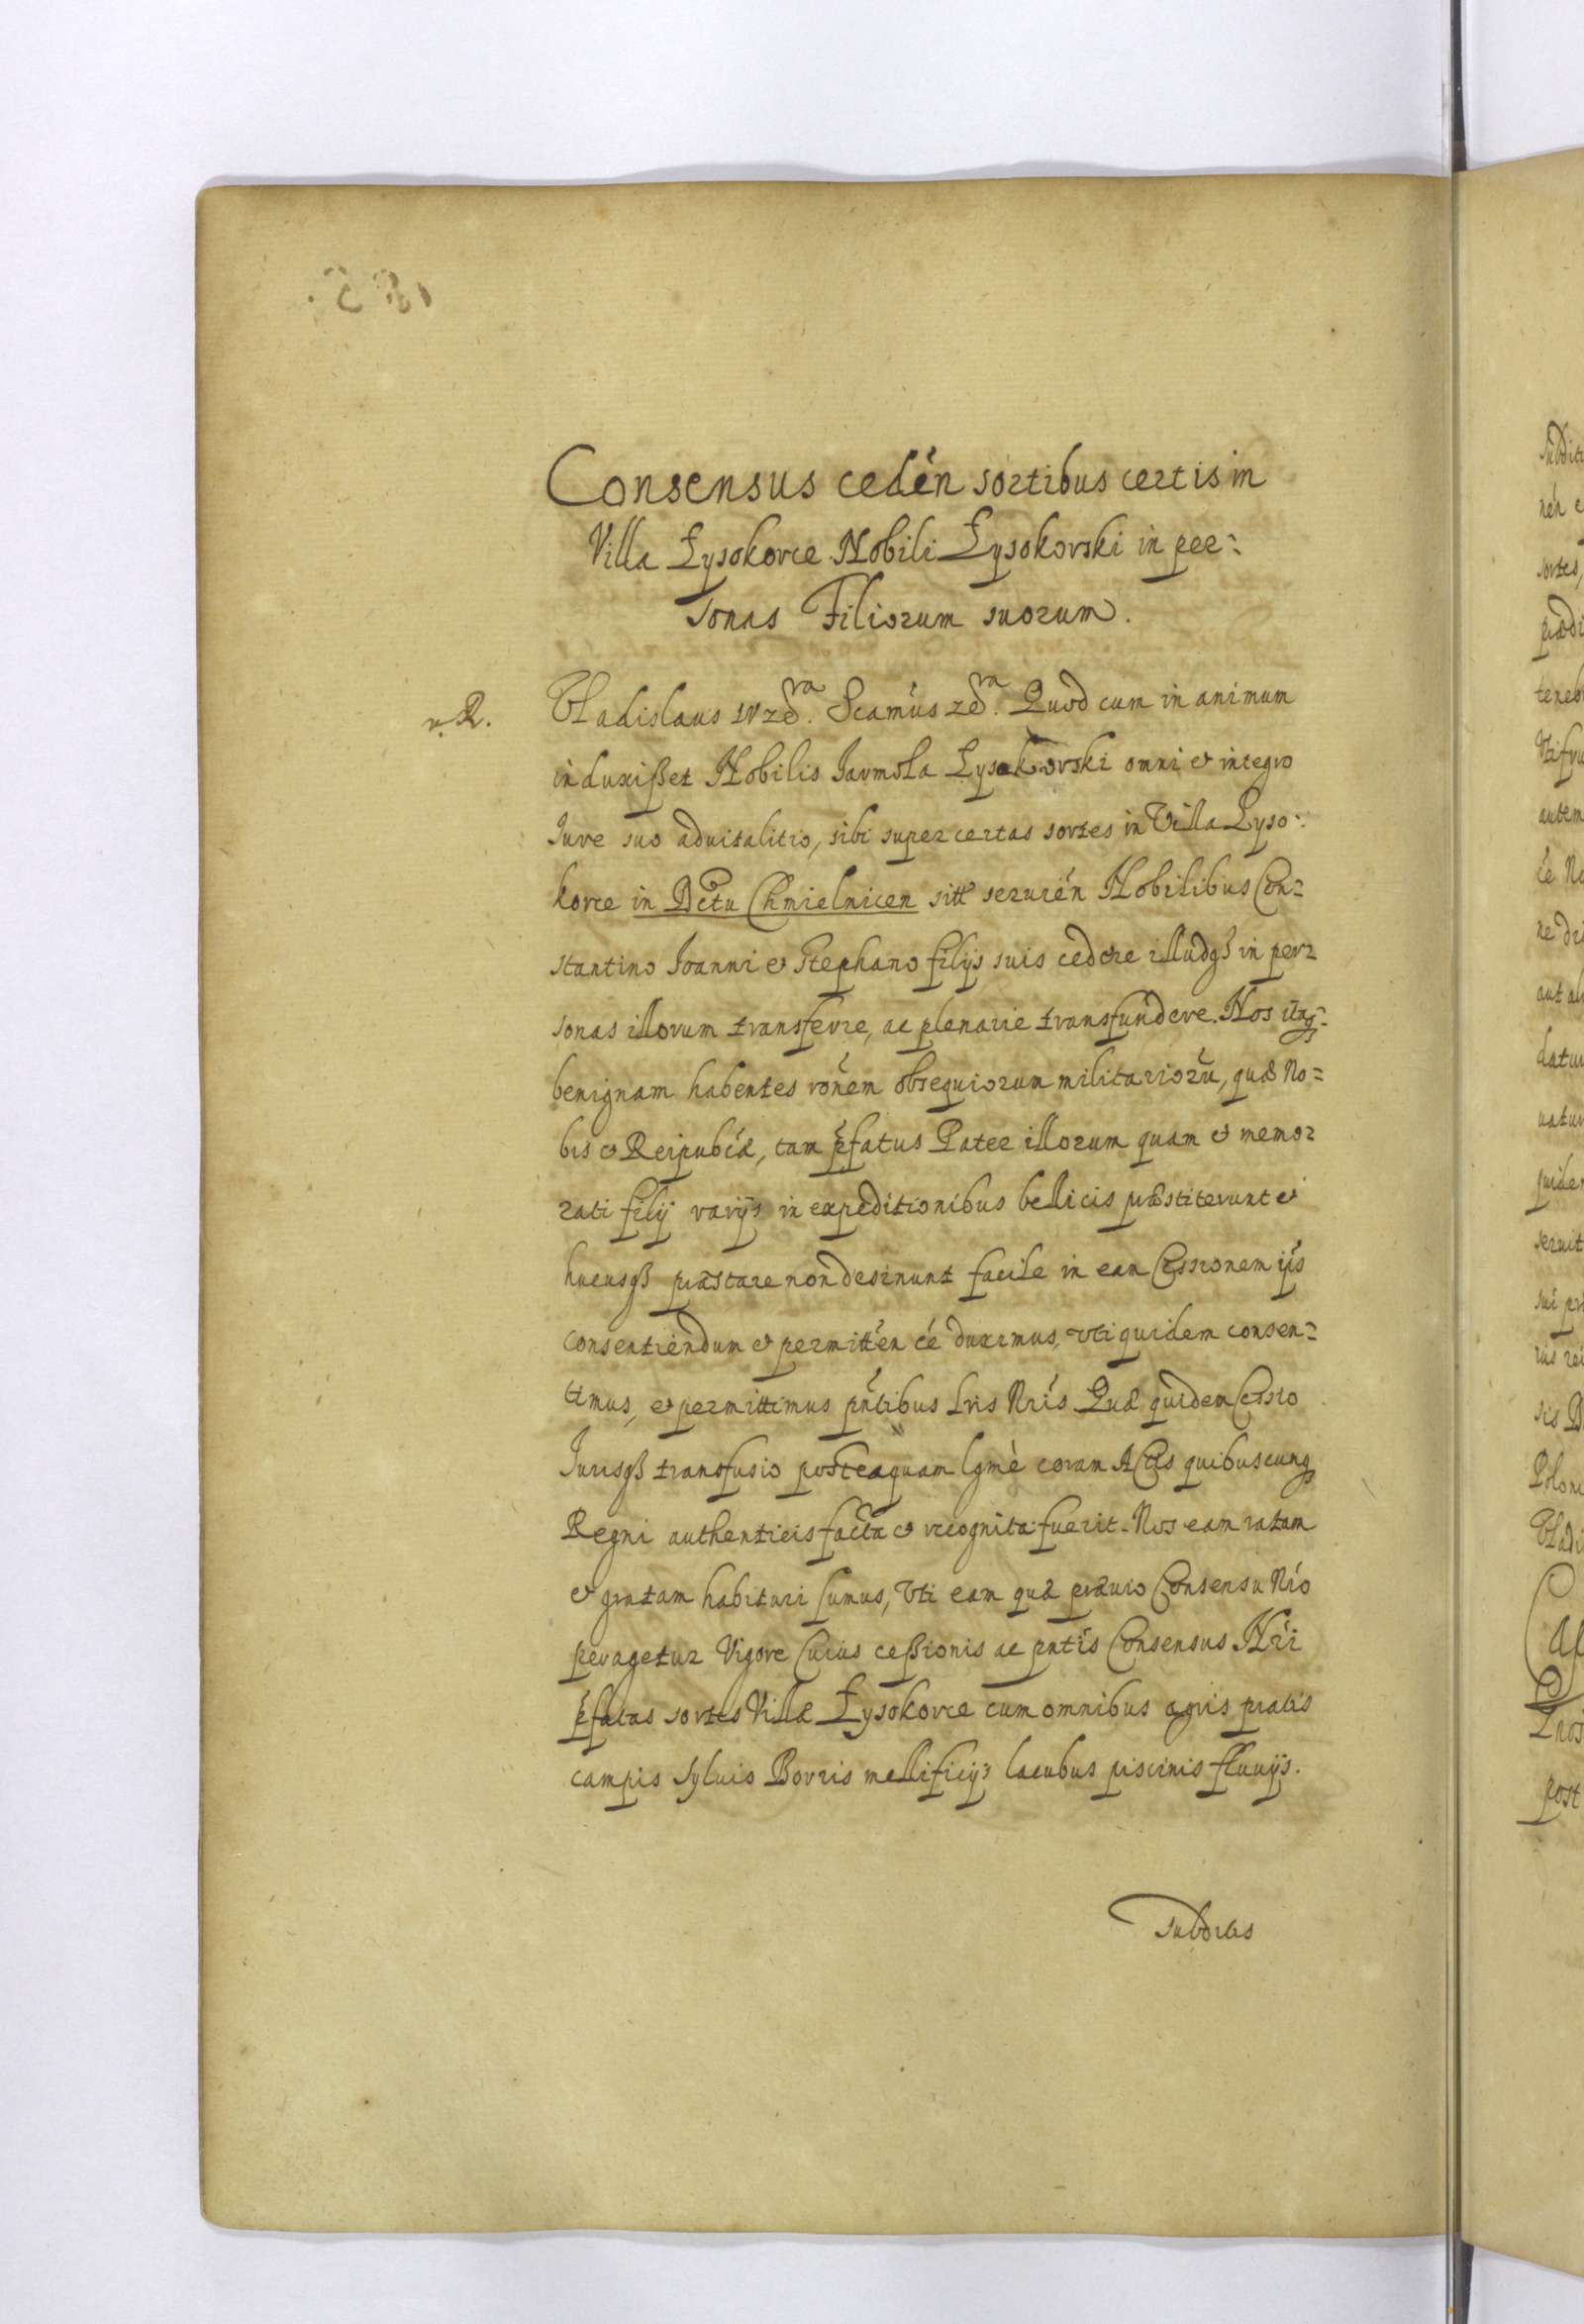 Consensus cedén sortibus certis in
Villa Łysokorce Nobili Łysokorski in per=
sonas Filiorum suorum.
Vladislaus IV etc̃ra. Scimus etc̃ra. Quod cum in animum
induxißet Nobilis Jarmoła Łysokorski omni et integro
Jure suo aduitalitio, sibi super certas sortes in Villa Łyso:
korce in Dctu Chmielnicen sitt seruién Nobilibus Con=
stantino Joanni et Stephano filijs suis cedere illudqȝ in per=
sonas illorum transferre, ac plenarie transfundere. Nos itaqȝ
benignam habentes rönem obsequiorum militariorũ, quæ No=
bis et Reipubcæ, tam pfatus Pater illorum quam et memo=
rati filij varijs in expeditionibus bellicis præstiterunt et
hucusqȝ præstare non desinunt facile in eam Cessionem ijs
consentiendum et permittén ée duximus, vti quidem consen=
timus, et permittimus pntibus Lris Nris Quæ quidem Cessio
Jurisqȝ transfusio posteaquam lgmè coram Actis quibuscunqȝ
Regni authenticis facta et recognita fuerit. Nos eam ratam
et gratam habituri sumus, Vti eam quæ præuio Consensu Nro
peragetur Vigore Cuius ceßionis ac pntis Consensus Nri
pfatas sortes Villæ Łysokorce cum omnibus agris pratis
campis syluis Borris mellificijs lacubus piscinis fluuijs.
subditis